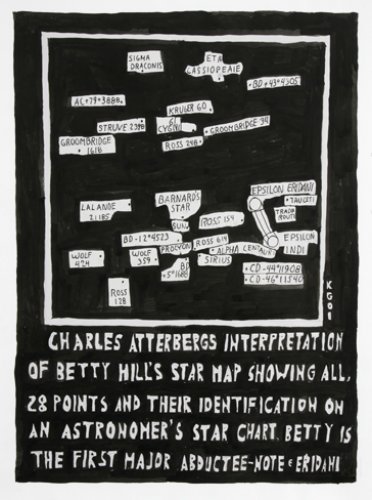 SIGMA
DRACONIS
ETA
CASSIOPEAIE
BD+43°4305
AC+79°3888
KRUGER 60
STRUVE 2398
61
CYGNI
GROOMBRIDGE 34
GROOMBRIDGE
1618
ROSS 248
BARNARD'S
STAR
EPSILON ERIDANI
TAU CETI
TRADE
ROUTE
LALANDE
21185
SUN
ROSS 154
BD-12°4523
PROCYON
ROSS 614
ALPHA CENTAURI
EPSILON
INDI
WOLF
424
WOLF
359
BD
+5°1668
SIRIUS
CD-44°11908
CD-46°11540
ROSS
128
KGOI
CHARLES ATTERBERGS INTERPRETATION
OF BETTY HILL'S STAR MAP SHOWING ALL,
28 POINTS AND THEIR IDENTIFICATION ON
AN ASTRONOMER'S STAR CHART. BETTY IS
THE FIRST MAJOR ABDUCTEE-NOTE E ERIDANI